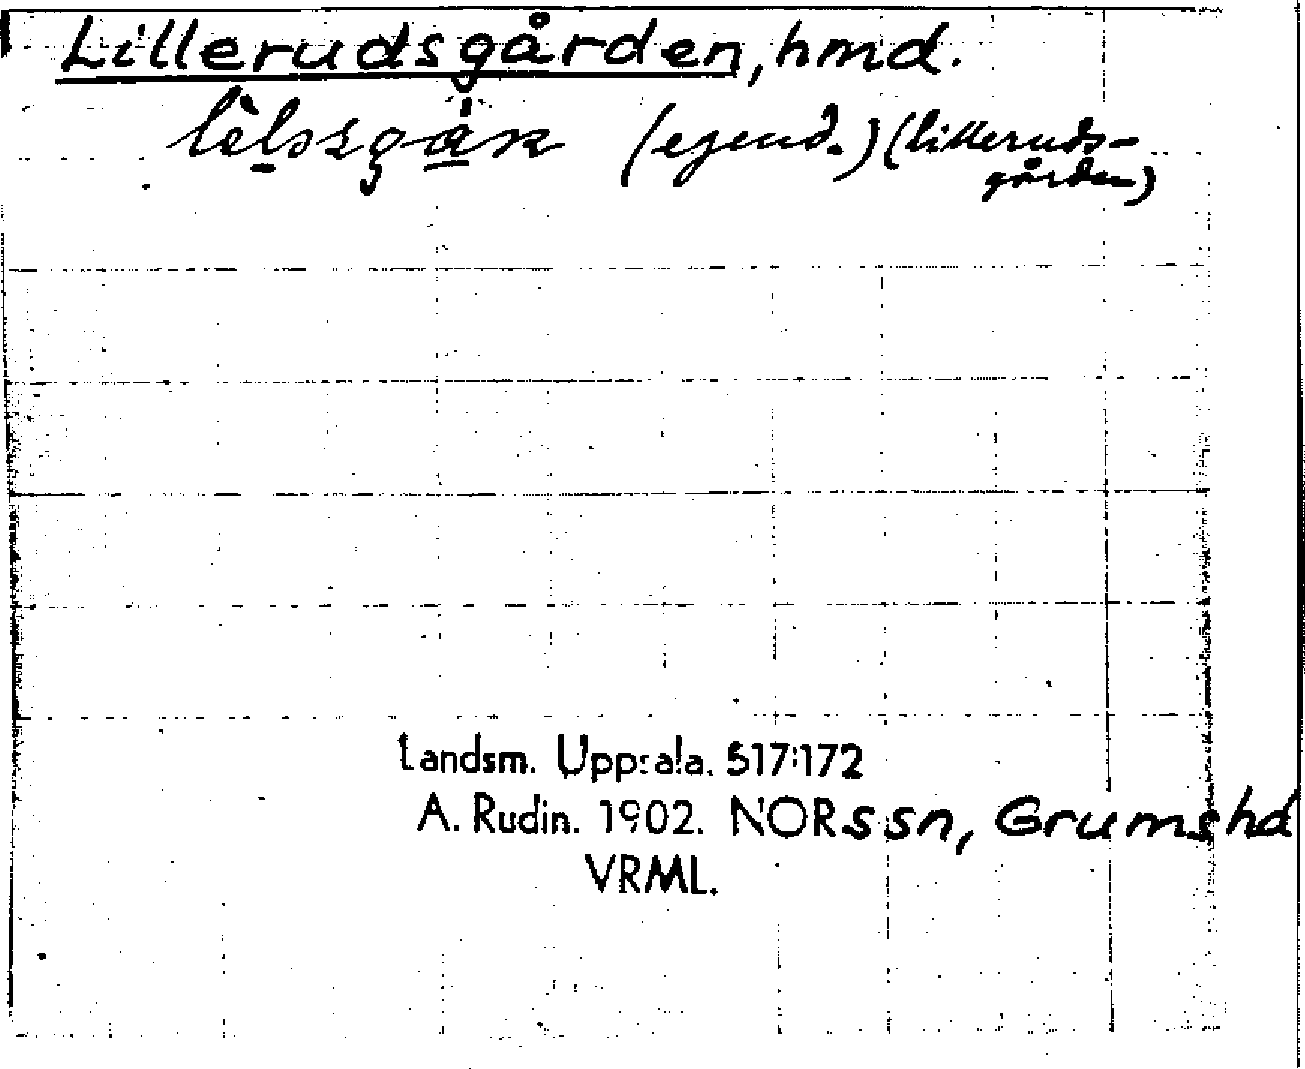 Lillerudsgården, hmd.
(egend.) (lilleruds-
gården)
Landsm. Uppsala. 517:172
A. Rudin. 1902. NORs sn, Grums hd
VRML.